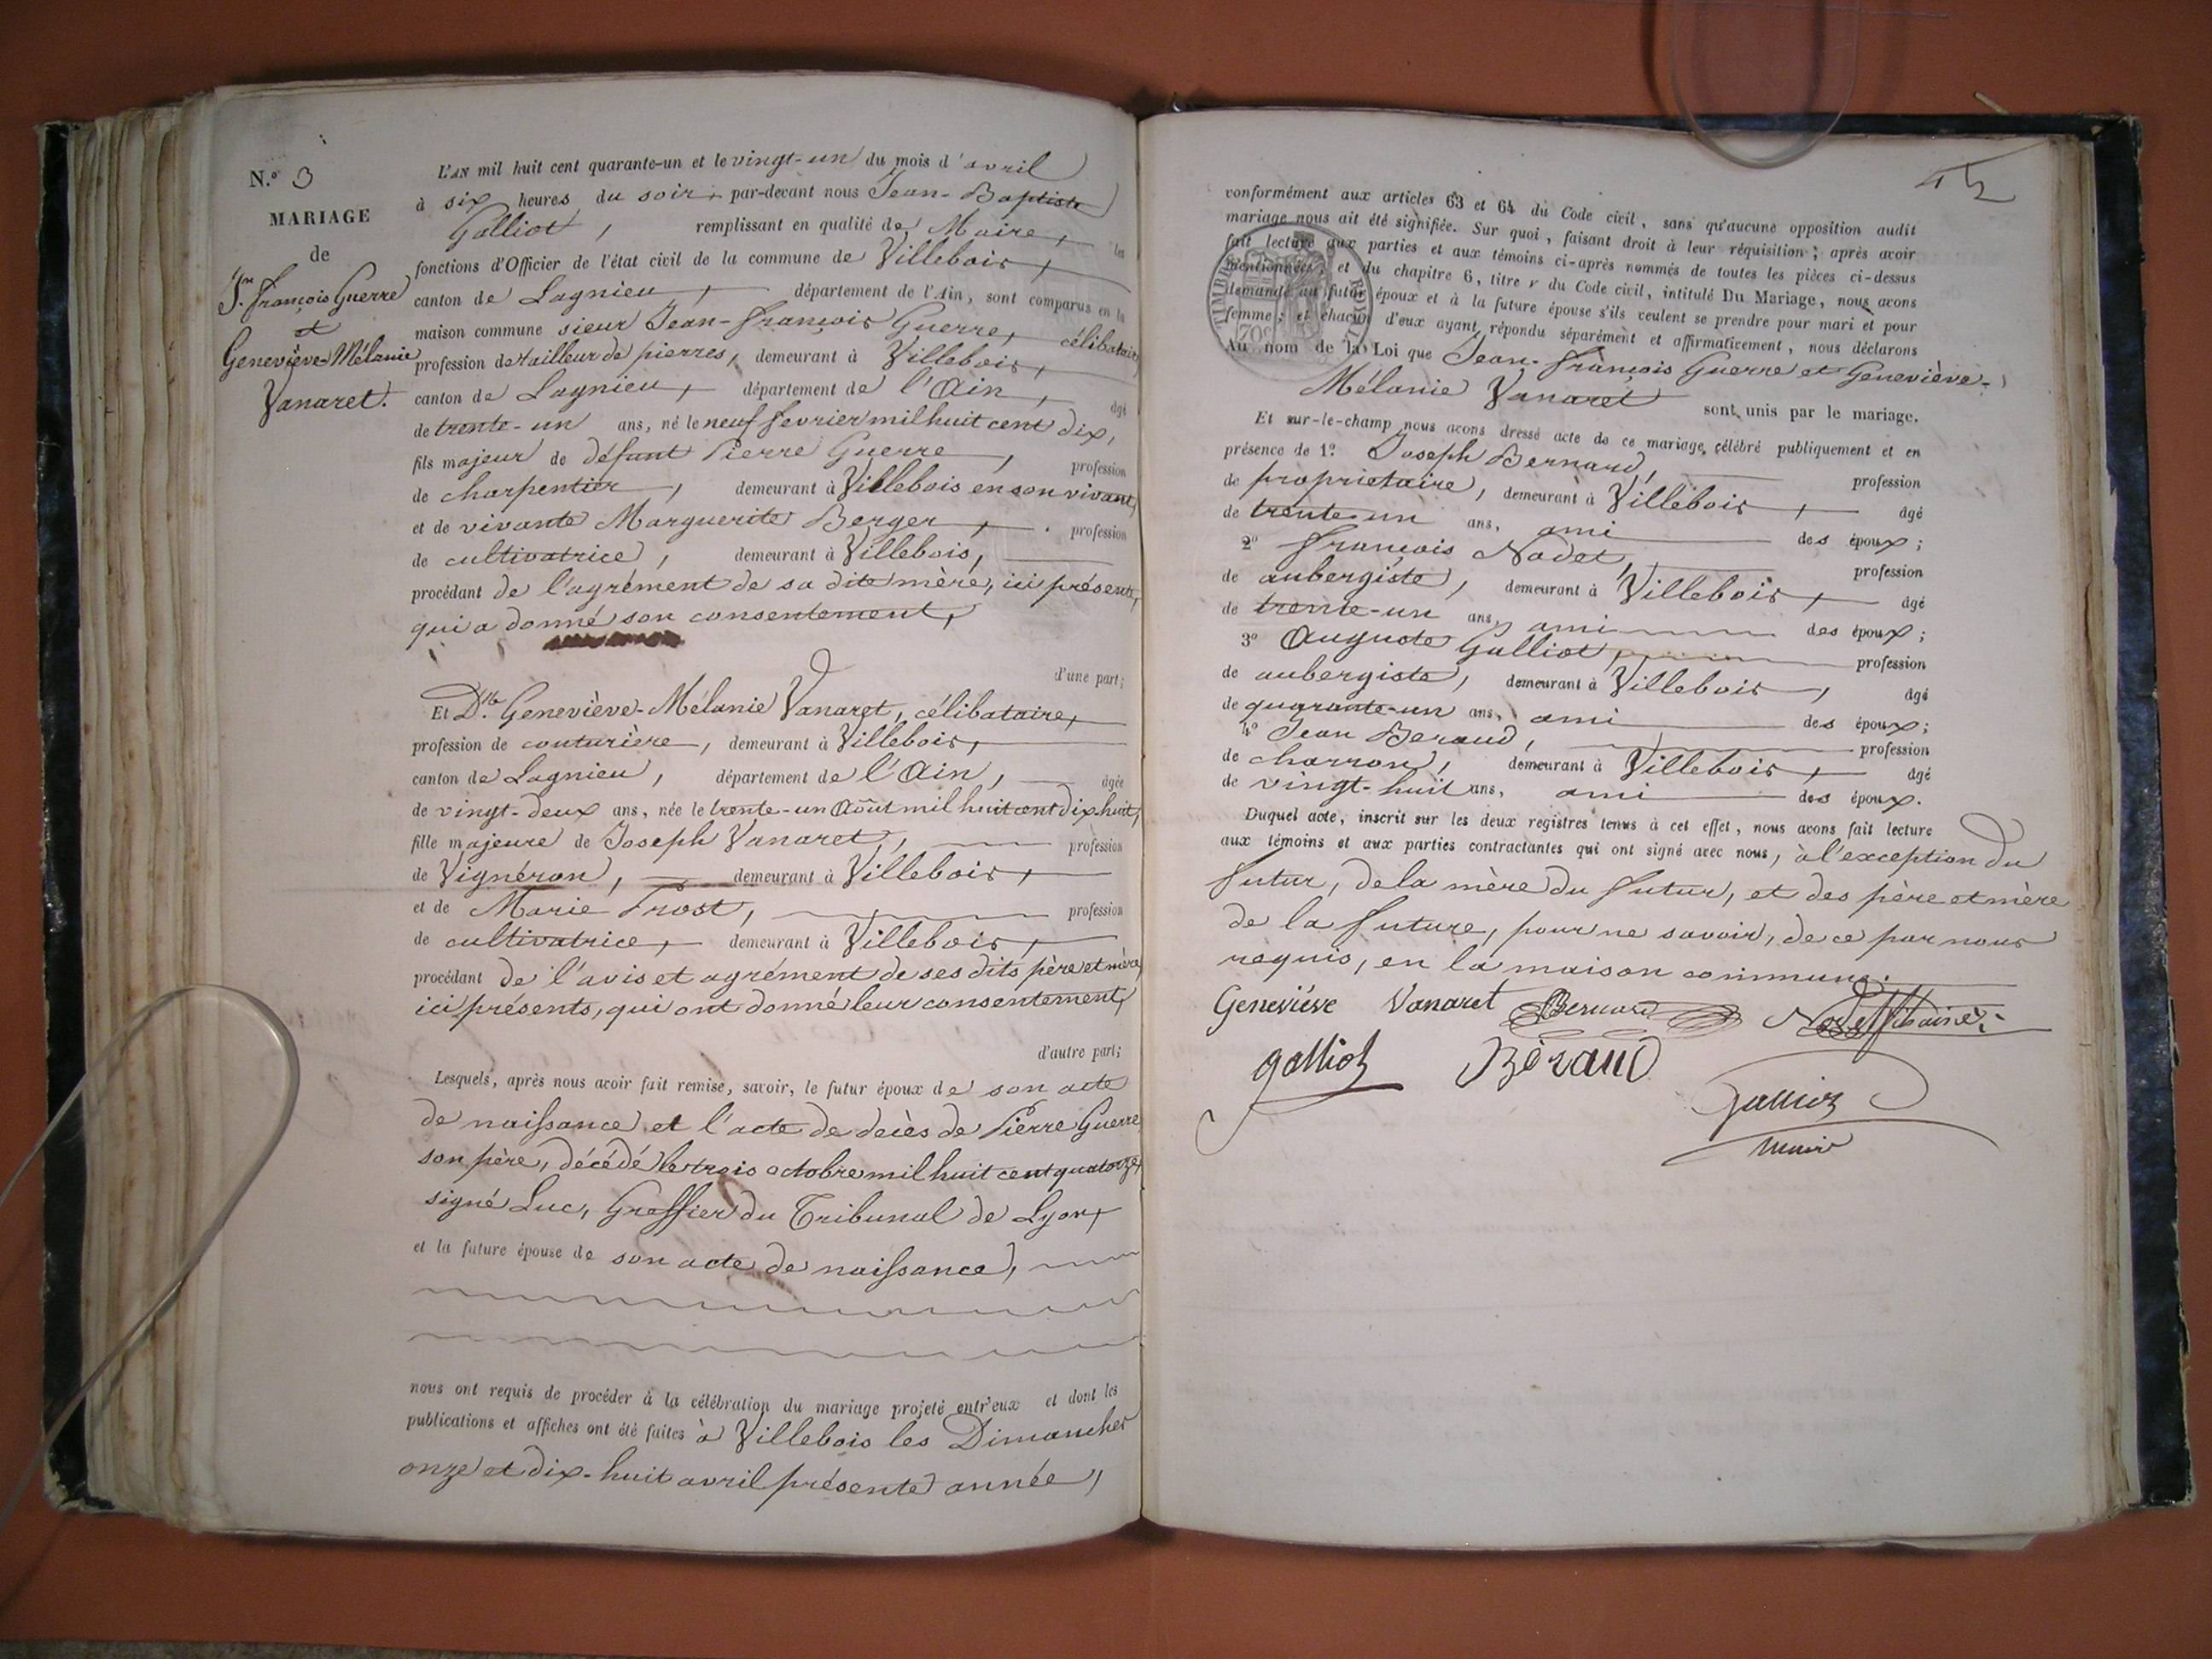 N.o 3
MARIAGE
de
Jn. François Guerre
et
Geneviève-Mélanie
Vanaret.
L'AN mil huit cent quarante-un et le vingt-un du mois d'avril
à six heures du soir, par-devant nous Jean-Baptiste
Galliot, remplissant en qualité de Maire, les
fonctions d'Officier de l'état civil de la commune de Villebois,
canton de Lagnieu, département de l'Ain, sont comparus en la
maison commune sieur Jean-François Guerre, célibataire,
profession de tailleur de pierres, demeurant à Villebois,
canton de Lagnieu, département de l'Ain, âgé
de trente-un ans, né le neuf fevrier mil huit cent dix,
fils majeur de défunt Pierre Guerre, profession
de charpentier, demeurant à Villebois en son vivant,
et de vivante Marguerite Berger, profession
de cultivatrice, demeurant à Villebois,
procédant de l'agrément de sa dite mère, ici présente,
qui a donné son consentement,
d'une part;
Et Dlle. Geneviève-Mélanie Vanaret, célibataire,
profession de couturière, demeurant à Villebois,
canton de Lagnieu, département de l'Ain, âgée
de vingt-deux ans, née le trente-un Août mil huit cent dix-huit,
fille majeure de Joseph Vanaret, profession
de Vignéron, demeurant à Villebois,
et de Marie Trost, profession
de cultivatrice, demeurant à Villebois,
procédant de l'avis et agrément de ses dits père et mère,
ici présents, qui ont donné leur consentement,
d'autre part;
Lesquels, après nous avoir fait remise, savoir, le futur époux de son acte
de naissance et l'acte de decès de Pierre Guerre
son père, décédé le trois octobre mil huit cent quatorze,
signé Luc, Greffier du Tribunal de Lyon,
et la future épouse de son acte de naissance,
nous ont requis de procéder à la célébration du mariage projeté entr'eux et dont les
publications et affiches ont été faites à Villebois les Dimanches
onze et dix-huit avril présente année,
conformément aux articles 63 et 64 du Code civil, sans qu'aucune opposition audit
mariage nous ait été signifiée. Sur quoi, faisant droit à leur réquisition; après avoir
fait lecture aux parties et aux témoins ci-après nommés de toutes les pièces ci-dessus
mentionnées, et du chapitre 6, titre v du Code civil, intitulé Du Mariage, nous avons
demandé au futur époux et à la future épouse s'ils veulent se prendre pour mari et pour
femme; et chacun d'eux ayant répondu séparément et affirmativement, nous déclarons
Au nom de la Loi que Jean-François Guerre et Geneviève-
Mélanie Vanaret sont unis par le mariage.
Et sur-le-champ nous avons dressé acte de ce mariage, célébré publiquement et en
présence de 1o. Joseph Bernard, profession
de proprietaire, demeurant à Villebois, âgé
de trente-un ans, ami des époux;
2o François Nodet, profession
de aubergiste, demeurant à Villebois, âgé
de trente-un ans, ami des époux;
3o Auguste Galliot, profession
de aubergiste, demeurant à Villebois, âgé
de quarante-un ans, ami des époux;
4o Jean Beraud, profession
de charron, demeurant à Villebois, âgé
de vingt-huit ans, ami des époux.
Duquel acte, inscrit sur les deux registres tenus à cet effet, nous avons fait lecture
aux témoins et aux parties contractantes qui ont signé avec nous, à l'exception du
futur, de la mère du futur, et des père et mère
de la future, pour ne savoir, de ce par nous
requis, en la maison commune.
Geneviéve Vanaret Bernard Nodet
galliot Béraud
Galliot
maire
70c